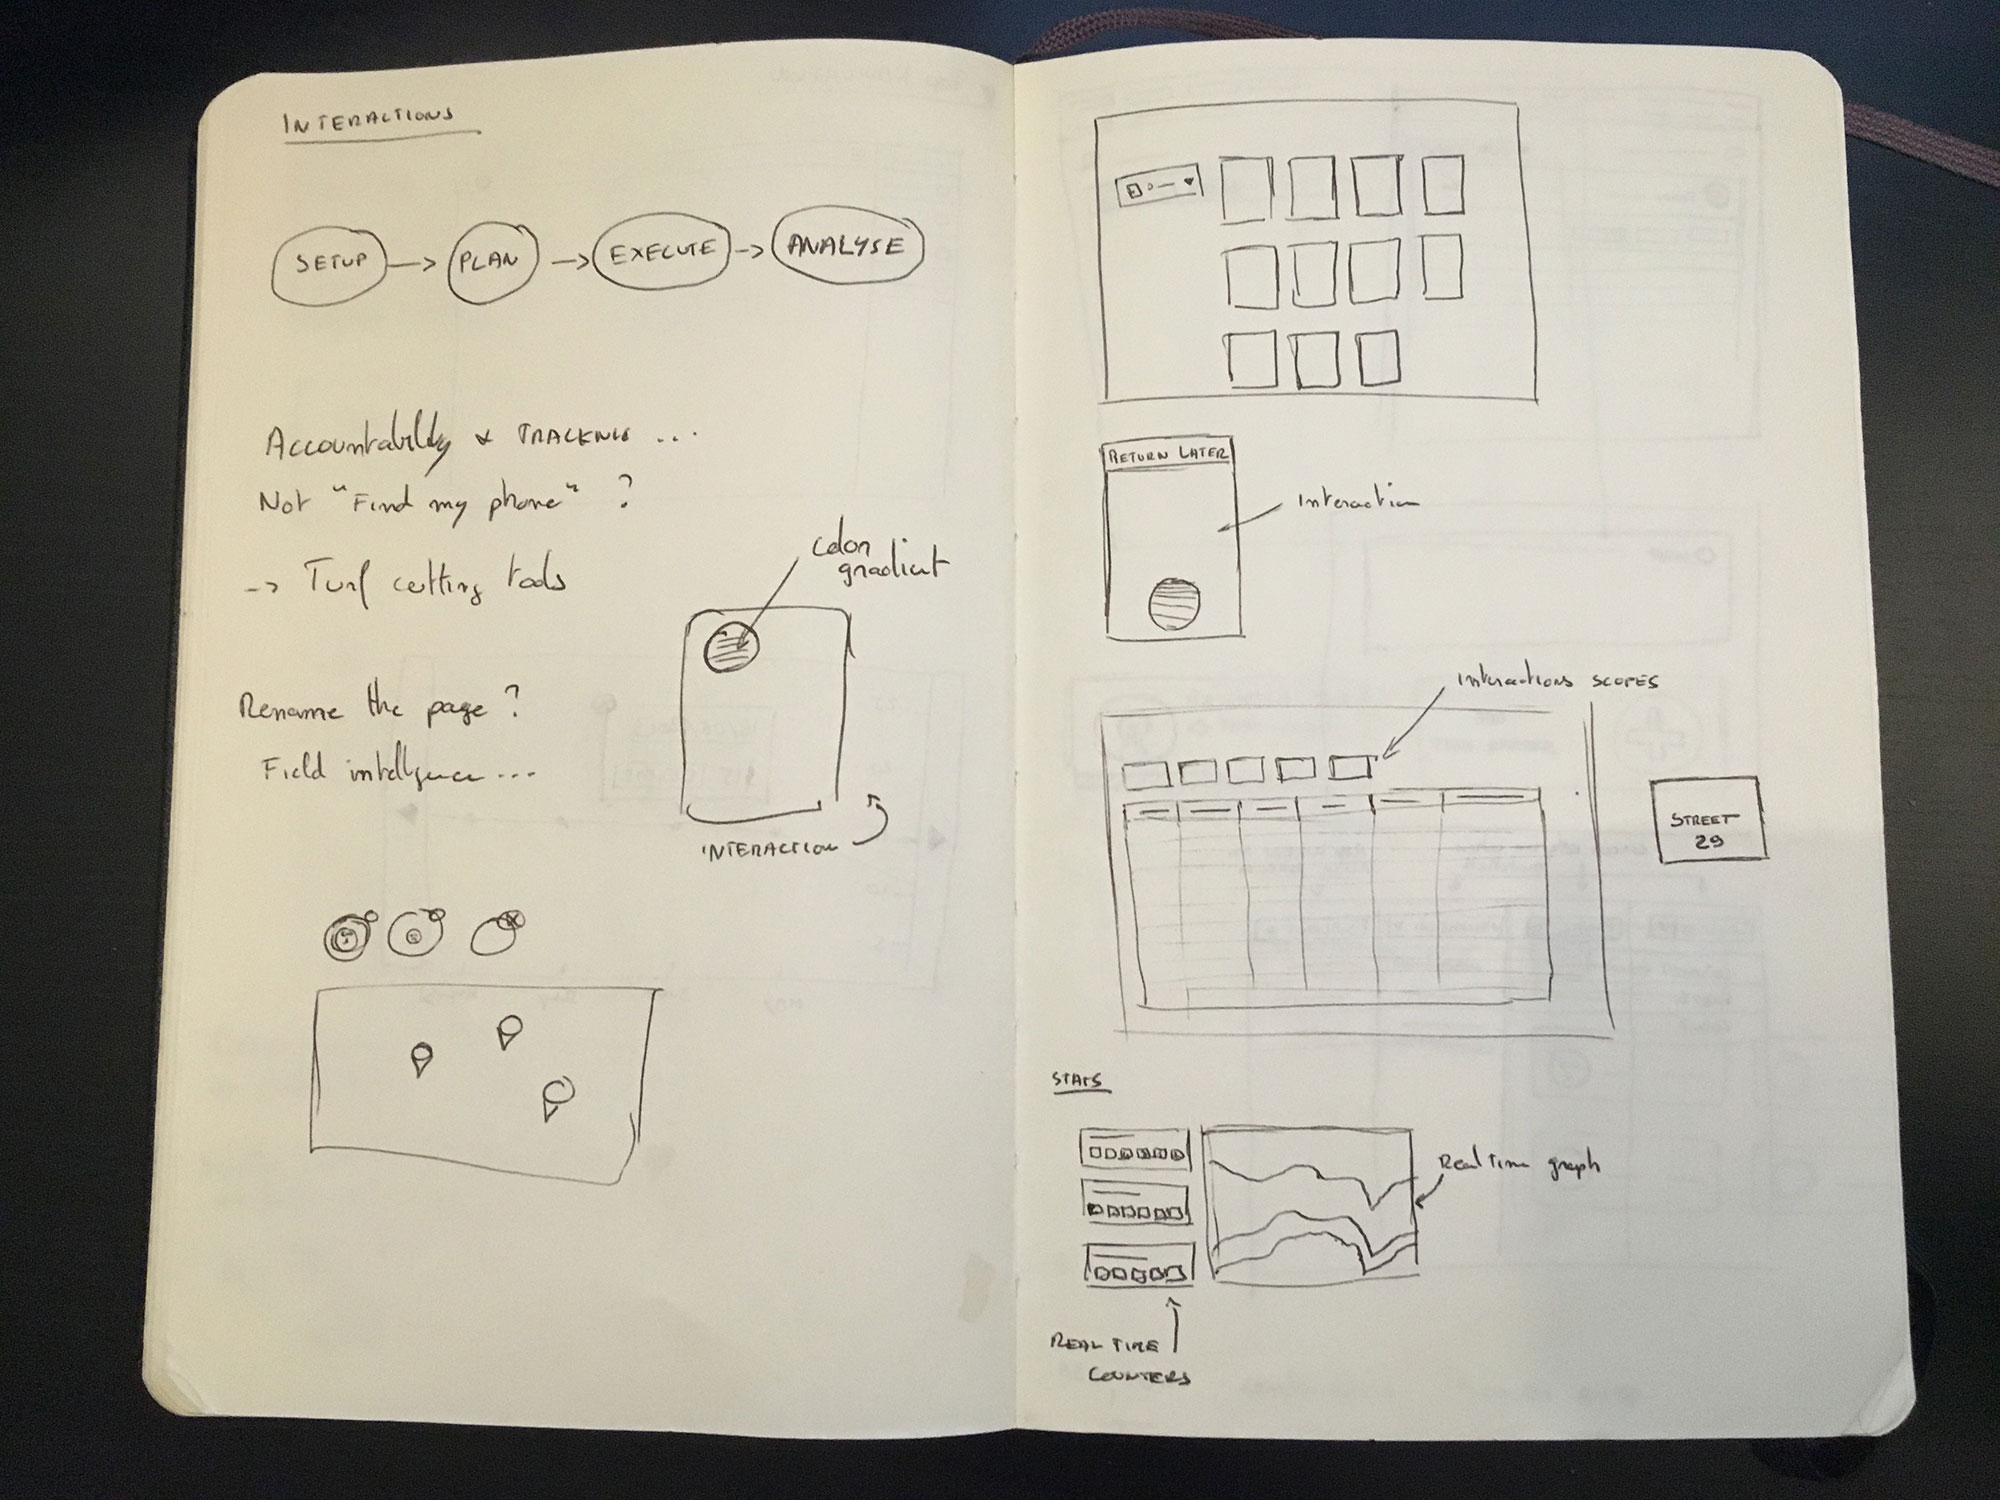 INTERACTIONS
SETUP -> PLAN -> EXECUTE -> ANALYSE
Accountability & TRACKING ...
Not "Find my phone" ?
-> Turf cutting tools
Color
gradient
Rename the page ?
Field intelligence ...
INTERACTION
RETURN LATER
Interaction
Interactions SCOPES
STREET
29
STATS
Real Time graph
REAL TIME
COUNTERS